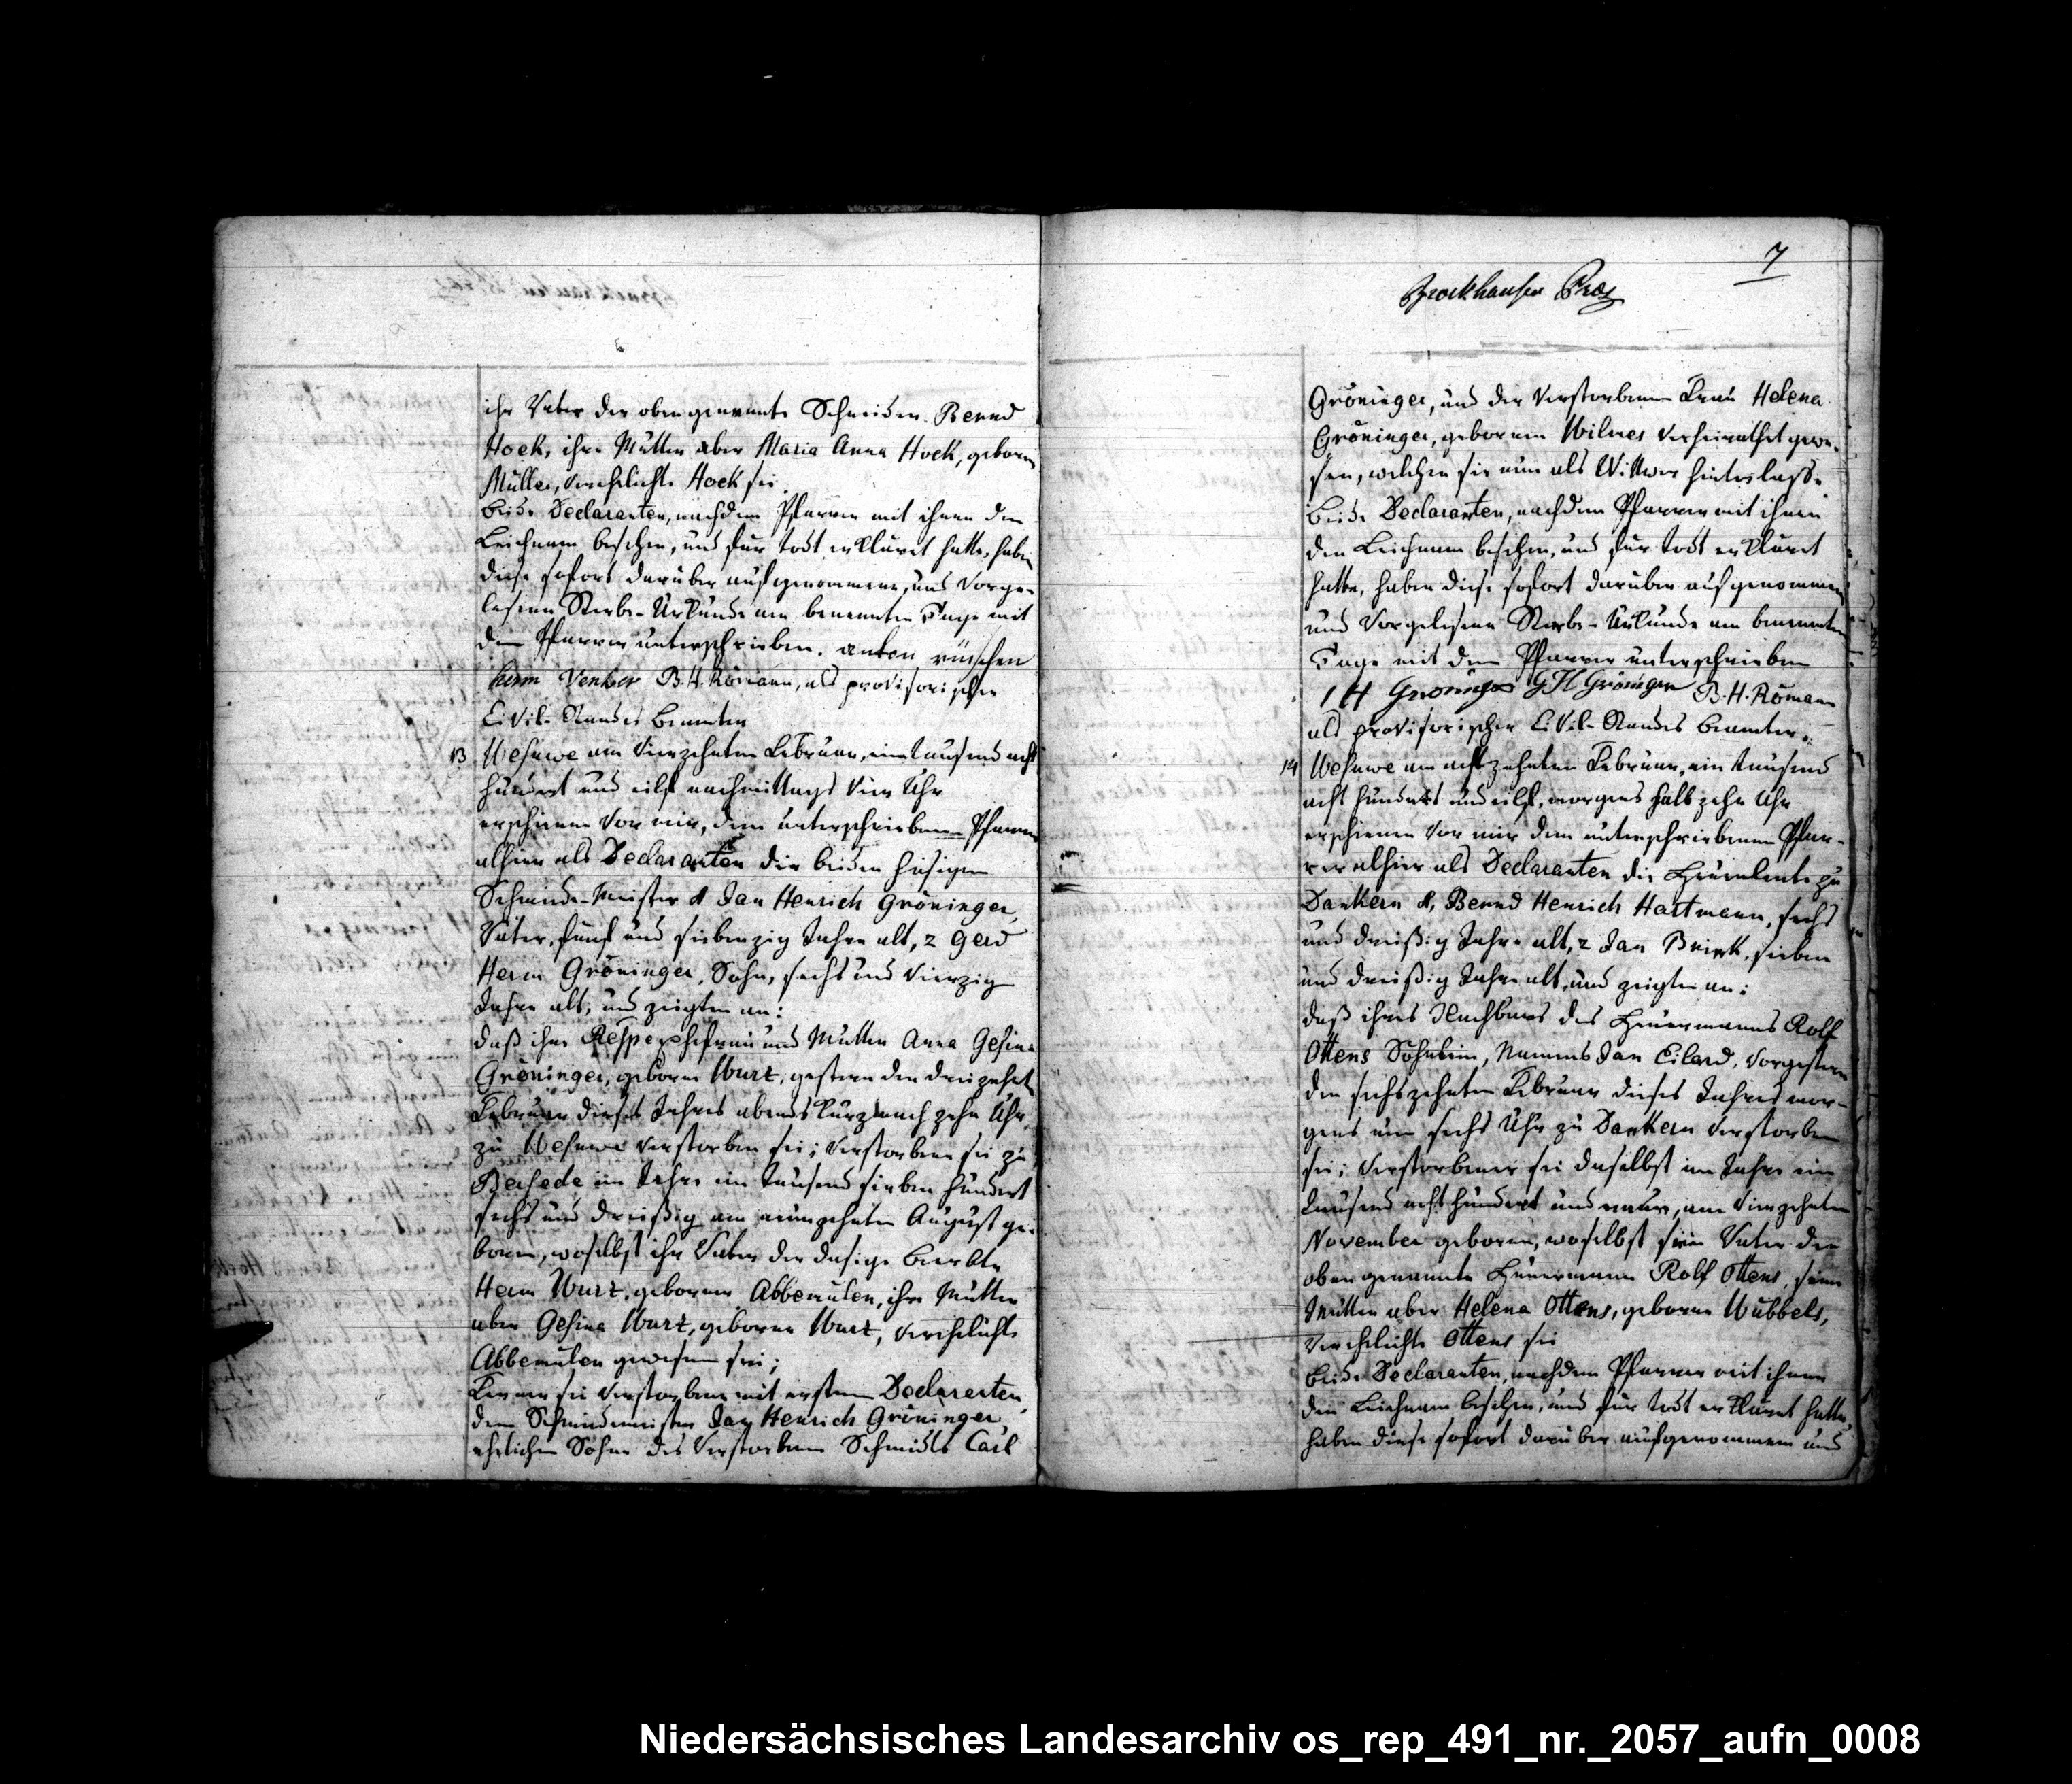 ihr Vater der obengenannte Schneider Bernd
Hoek, ihre Mutter aber Maria Anna Hoek, geborne
Müller, verehlichte Hoek sei.
beide Declaranten, nachdem Pfarrer mit ihnen den
Leichnam besehen, und für todt erkläret hatte, haben
diese sofort darüber aufgenommene, und vorge-
lesene Sterbe-Urkunde am benannten Tage mit
dem Pfarrer unterschrieben. anton rüschen
herm Venker B. H. Römann, als provisorischer
Civil-Standes Beamter
13 Wesuwe am vierzehnten Februar, eintausend acht
hundert und eilf nachmittags vier Uhr
erschienen vor mir, dem unterschriebenen Pfarrer
alhier als Declaranten die beiden hiesigen
Schmiede-Meister 1 Jan Henrich Gröninger,
Vater, fünf und siebenzig Jahre alt, 2 Gerd
Herm Gröninger, Sohn, sechs und vierzig
Jahre alt, und zeigten an:
daß ihre Respe Ehefrau und Mutter Anna Gesina
Gröninger, geborne Wurt, gestern den dreizehnt
Februar dieses Jahres abends kurz nach zehn Uhr
zu Wesuwe verstorben sei; verstorbene sei zu
Versede im Jahre ein tausend sieben hundert
sechs und dreißig am neunzehnten August ge-
boren, woselbst ihr Vater der dasige
Herm Wurt, geborner Abbemulen, ihre Mutter
aber Gesina Wurt, geborne Wurt, verehlichte
Abbemulen gewesen sei;
Ferner sei verstorbene mit ersterem Declaranten,
dem Schmiedemeister Jan Henrich Gröninger
ehelichen Sohne des verstorbenen Schmiedes Carl
7
Brockhauser Præs
Gröninger, und der verstorbenen Frau Helena
Gröninger, gebornen Wilnes verheirathet gewe-
sen, welchen sie nun als Wittwer hinterlasse
beide Declaranten, nachdem Pfarrer mit ihnen
den Leichnam besehen, und für todt erkläret
hatte, haben diese sofort darüber aufgenommene
und vorgelesene Sterbe-Urkunde am benannten
Tage mit dem Pfarrer unterschrieben
I H Gröninger G H Gröninger B. H. Römann
als provisorischer Civil-Standes Beamter.
14 Wesuwe am achtzehnten Februar, ein tausend
acht hundert und eilf, morgens halb zehn Uhr
erschienen vor mir dem unterschriebenen Pfar-
rer alhier als Declaranten die Heuerleute zu
Dankern 1, Bernd Henrich Hartmann, sechs
und dreißig Jahre alt, 2 Jan sieben
und dreißig Jahre alt, und zeigten an:
daß ihres Nachbars des Heuermanns Rolf
Ottens Söhnlein, Namens Jan Eilard, vorgestern
den sechszehnten Februar dieses Jahres mor-
gens um sechs Uhr zu Dankern verstorben
sei; verstorbener sei daselbst im Jahre ein
tausend acht hundert und neun, am vierzehnten
November geboren, woselbst sein Vater der
obengenannte Heuermann Rolf Ottens, seine
Mutter aber Helena Ottens, geborne Wübbels,
verehlichte Ottens sei
beide Declaranten, nachdem Pfarrer mit ihnen
den Leichnam besehen, und für todt erkläret hatte,
haben diese sofort darüber aufgenommene und
Niedersächsisches Landesarchiv os_rep_491_nr._2057_aufn_0008